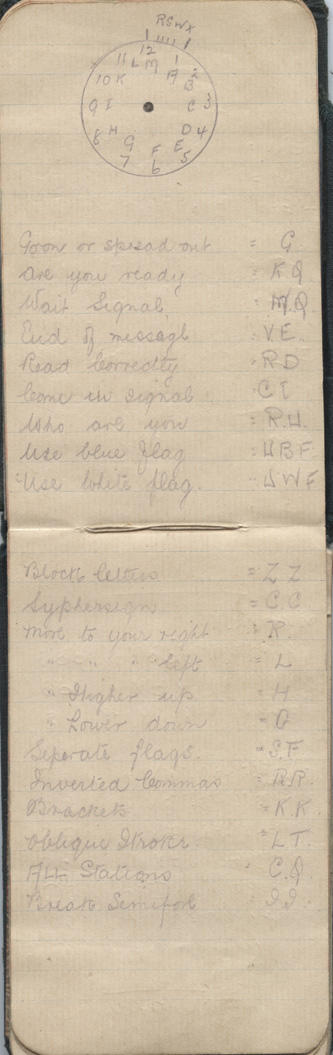 RSWX
12
11 L M 1
10 K A 2
B
9 I C 3
8 H D 4
G F E
7 6 5
Go on or spread out = G
Are you ready = KQ
Wait Signal = MQ
End of message VE
Read Correctly = RD
Come in signal CI
Who are you = R.U.
Use blue flag = UBF
Use White flag. UWF
Block letters = ZZ
Syphersign = C.C
Move to your right = R.
" " " " left = L
" Higher up = H
" Lower down =
Seperate flags. = S.F
Inverted Commas = RR
Brackets = KK
Oblique Stroke = LT.
All Stations C.Q.
Break II.